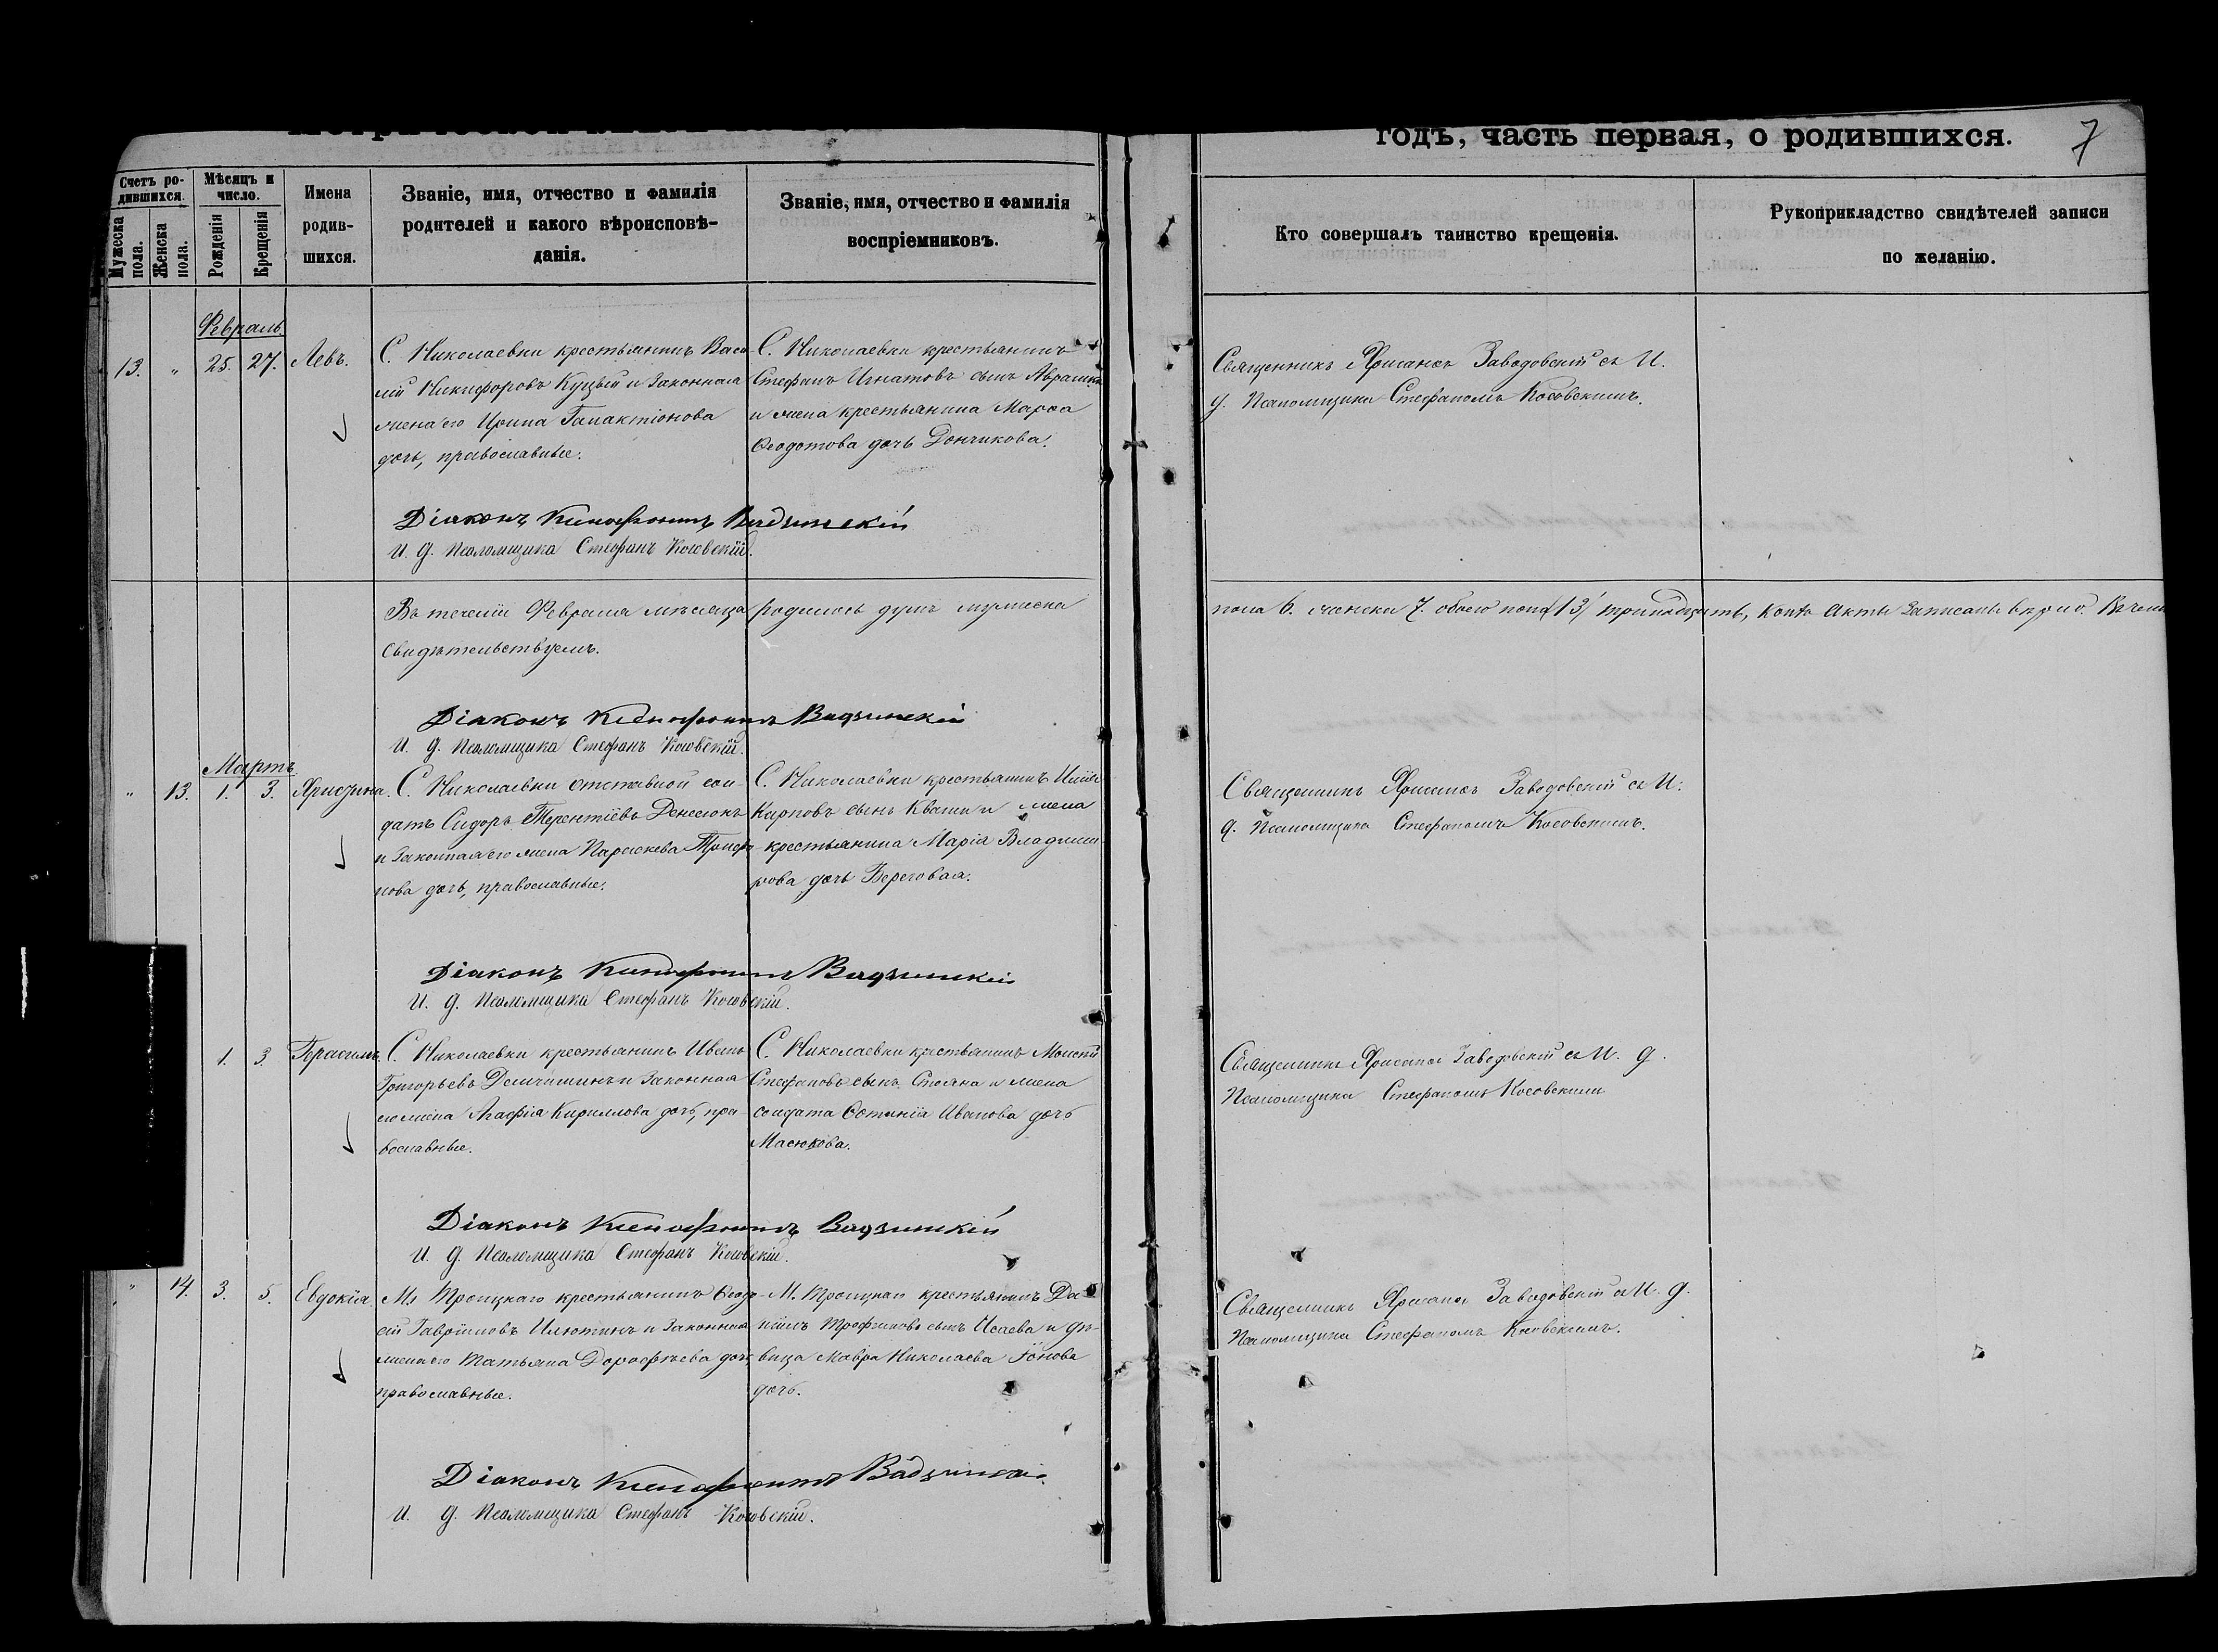 годъ, часть первая, о родившихся.
7
Счетъ ро-
дившихся.
Мужеска
пола.
Женска
пола.
Мѣсяцъ и
число.
Рожденія
Крещенія
Имена
родив-
шихся.
Званіе, имя, отчество и фамилія
родителей и какого вѣроисповѣ-
данія.
Званіе, имя, отчество и фамилія
воспріемниковъ.
Кто совершалъ таинство крещенія.
Рукоприкладство свидѣтелей записи
по желанію.
Февраль.
13. " 25. 27. Левъ.
С. Николаевки крестьянинъ Васи-
лій Никифоровъ Куцый и законная
жена его Ирина Галактіонова
дочь, православные.
С. Николаевки крестьянинъ
Стефанъ Игнатовъ сынъ
и жена крестьянина Марѳа
Ѳеодотова дочь Дончикова.
Священникъ Заводовскій съ И.
д. Псаломщика Стефаномъ Косовскимъ.
Діаконъ Ксенофонтъ Вадзинскій
И. д. Псаломщика Стефанъ Косовскій.
Въ теченіи Февраля мѣсяца родилось душъ мужеска
пола 6. женска 7. обоего пола (13) тринадцать, коихъ акты записаны
свидѣтельствуемъ.
Діаконъ Ксенофонтъ Вадзинскій
И. д. Псаломщика Стефанъ Косовскій.
Мартъ
" 13. 1. 3.
С. Николаевки отставной сол-
датъ Сидоръ Терентіевъ Денесюкъ
и законная его жена Параскева
нова дочь, православные.
С. Николаевки крестьянинъ
Карповъ сынъ Кваши и жена
крестьянина Марія Владими-
рова дочь Береговая.
Священникъ Заводовскій съ И.
д. Псаломщика Стефаномъ Косовскимъ.
Діаконъ Ксенофонтъ Вадзинскій
И. д. Псаломщика Стефанъ Косовскій.
1. 3. Герасимъ.
С. Николаевки крестьянинъ Иванъ
Григорьевъ и законная
его жена Агафія Кириллова дочь, пра-
вославные.
С. Николаевки крестьянинъ Моисей
Стефановъ сынъ Стояна и жена
солдата Иванова дочь
Масюкова.
Священникъ Заводовскій съ И. д.
Псаломщика Стефаномъ Косовскимъ
Діаконъ Ксенофонтъ Вадзинскій
И. д. Псаломщика Стефанъ Косовскій.
" 14. 3. 5. Евдокія
М. Троицкаго крестьянинъ
Гавріиловъ Илютинъ и законная
жена его Татьяна Дорофѣева дочь
православные.
М. Троицкаго крестьянинъ Да-
ніилъ Трофимовъ сынъ Исаева и дѣ-
вица Мавра Николаева Іонова
дочь.
Священникъ Заводовскій съ И. д.
Псаломщика Стефаномъ Косовскимъ.
Діаконъ Ксенофонтъ Вадзинскій.
И. д. Псаломщика Стефанъ Косовскій.